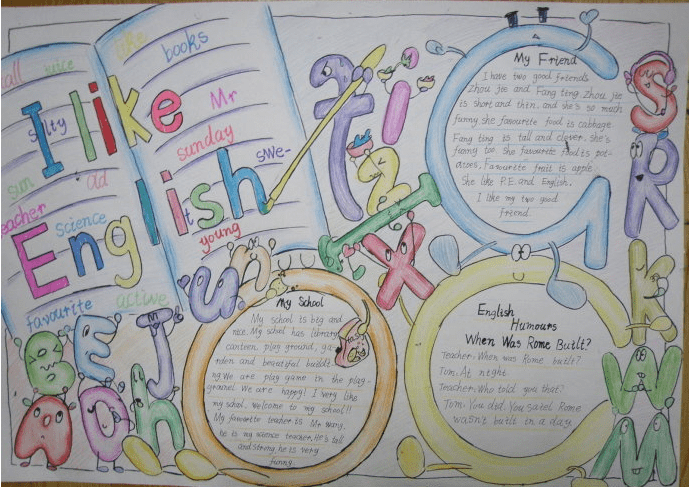 tall juice like books
salty Mr
sunday
sun ad swe-
teacher science it
young
favourite active
I like
English
My Friend
I have two good friends
Zhou jee and Fang ting Zhou jee
is short and thin. and she's so much
funny she favourite food is cabbage.
Fang ting is tall and clever. she's
funny too. She favourite food is pot-
atoes, Favourite fruit is apple.
She like P.E. and English.
I like my two good
friend.
My School
My school is big and
nice. My school has library
canteen play ground, ga-
rden and beautiful buildi-
ng. We are play game in the play-
ground. We are happy! I very like
my school. welcome to my school!!
My favourite teacher is Mr Wang.
he is my science teacher. He's tall
and strong, he is very
funny.
English
Humours
When Was Rome Built?
Teacher: When was Rome built?
Tom: At night.
Teacher: Who told you that?
Tom: You did. You saied Rome
wasn't built in a day.
t i z I x
S R K W M
u n
B E J
A O h
G